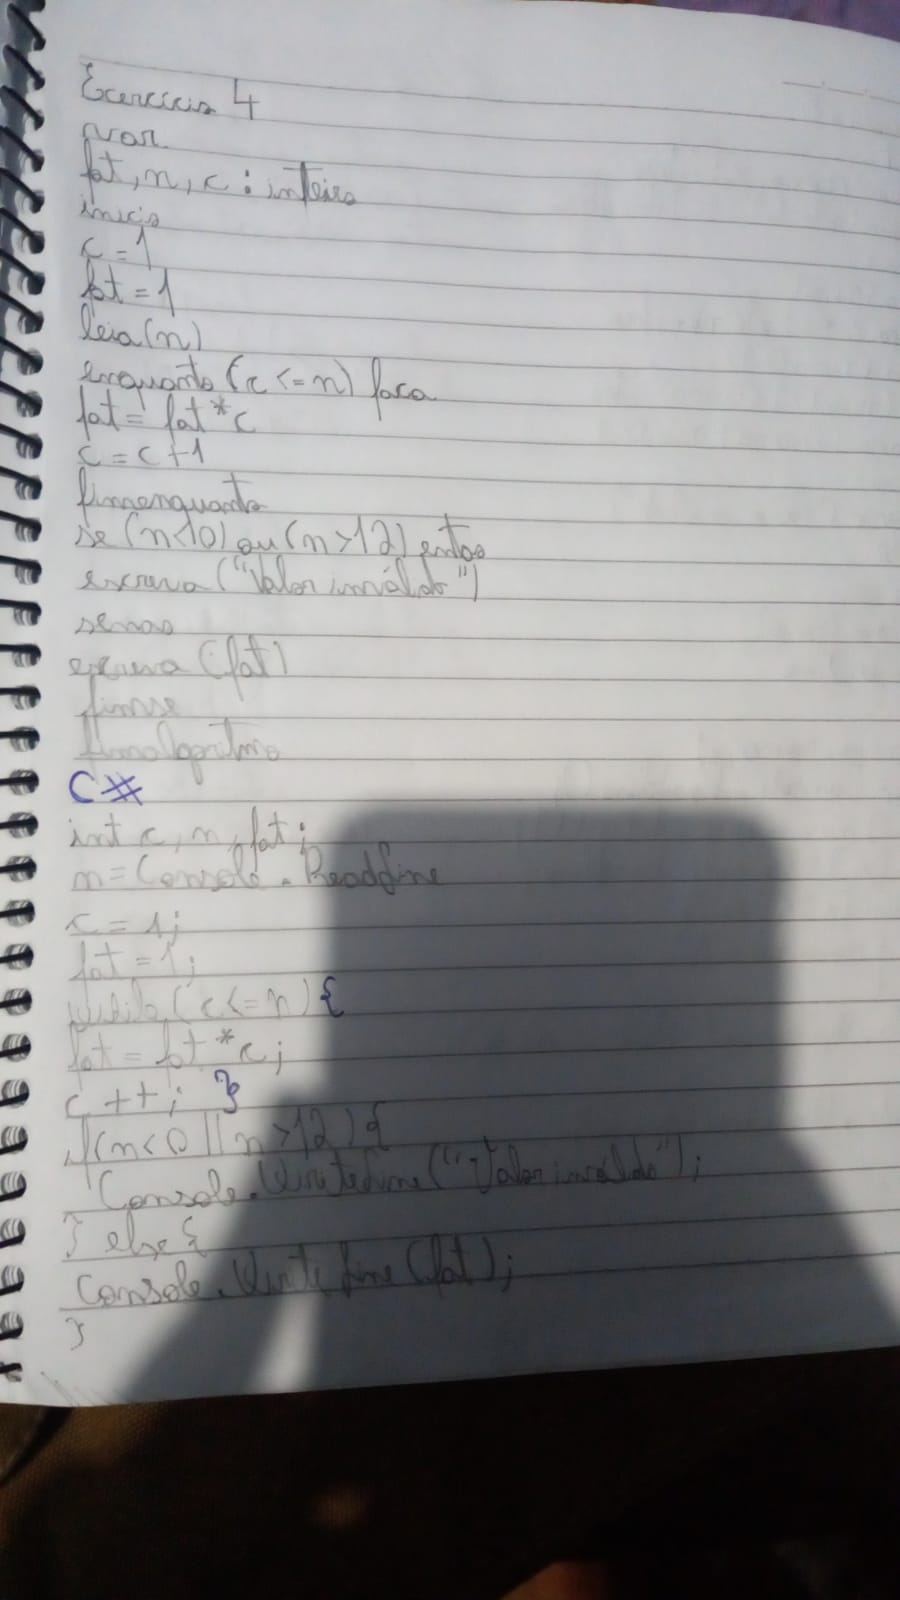 Exercício 4
var
fat, n, c : inteiro
inicio
c = 1
fat = 1
leia(n)
enquanto (c <= n) faca
fat = fat * c
c = c + 1
fimenquanto
se (n < 0) ou (n > 12) entao
escreva ("Valor inválido")
senao
escreva (fat)
fimse
fimalgoritmo
C#
int c, n, fat;
n = Console.ReadLine
c = 1;
fat = 1;
while (c <= n) {
fat = fat * c;
c ++; }
if (n < 0 || n > 12) {
Console.WriteLine ("Valor inválido");
} else {
Console.WriteLine (fat);
}